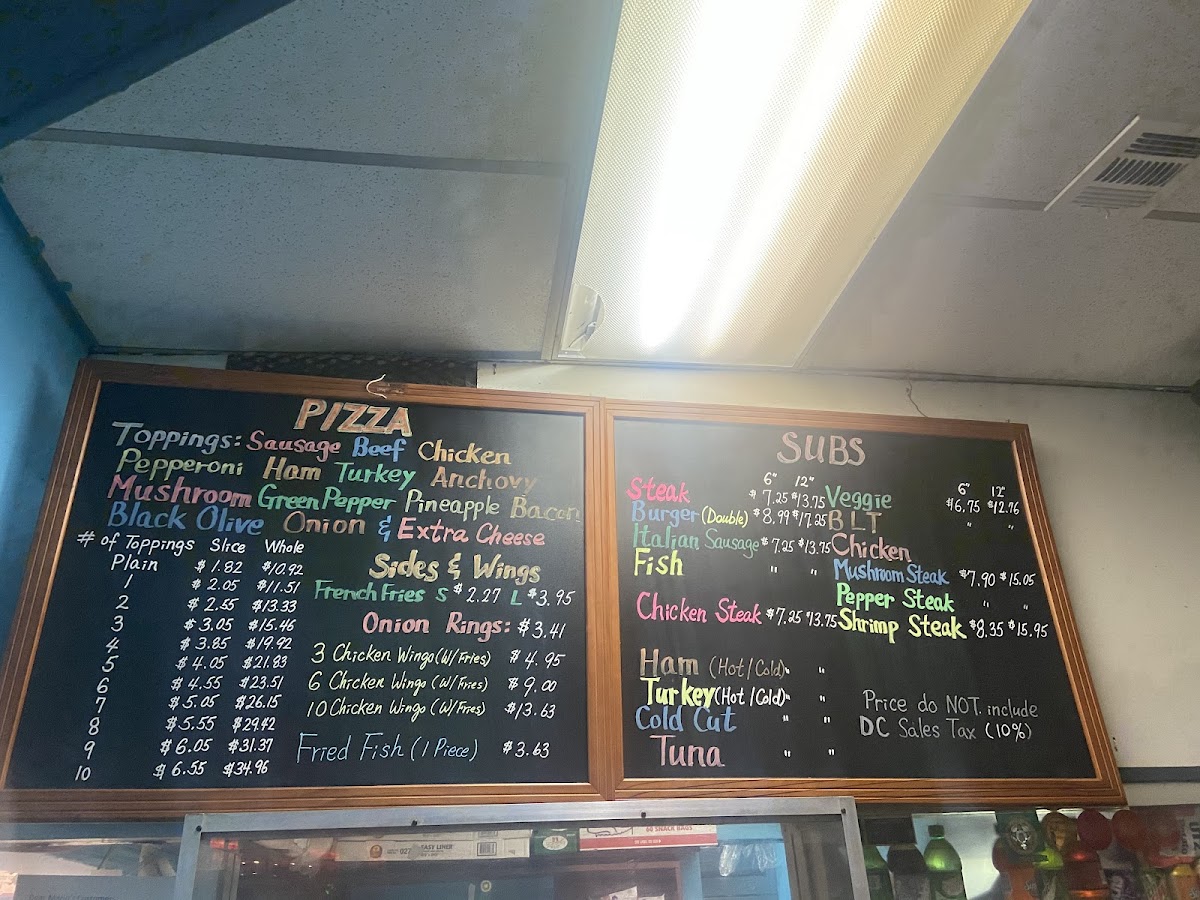 PIZZA
Toppings: Sausage Beef Chicken
Pepperoni Ham Turkey Anchovy
Mushroom Green Pepper Pineapple Bacon
Black Olive Onion & Extra Cheese
# of Toppings Slice Whole
Plain $1.82 $10.92
1 $2.05 $11.51
2 $2.55 $13.33
3 $3.05 $16.46
4 $3.85 $19.92
5 $4.05 $21.83
6 $4.55 $23.51
7 $5.05 $26.15
8 $5.55 $29.42
9 $6.05 $31.37
10 $6.55 $34.96
Sides & Wings
French Fries S $2.27 L $3.95
Onion Rings: $3.41
3 Chicken Wingo (W/Fries) $4.95
6 Chicken Wingo (W/Fries) $9.00
10 Chicken Wingo (W/Fries) $13.63
Fried Fish (1 Piece) $3.63
SUBS
6" 12"
Steak $7.25 $13.75
Burger (Double) $8.99 $17.25
Italian Sausage $7.25 $13.75
Fish " "
Chicken Steak $7.25 $13.75
Ham (Hot/Cold) " "
Turkey (Hot/Cold) " "
Cold Cut " "
Tuna " "
6" 12"
Veggie $6.75 $12.76
BLT " "
Chicken
Mushroom Steak $7.90 $15.05
Pepper Steak " "
Shrimp Steak $8.35 $15.95
Price do NOT. include
DC Sales Tax (10%)
EASY LINER
60 SNACK BAGS